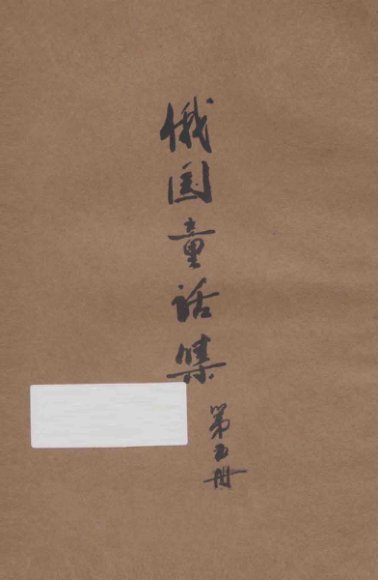 俄国童话集
第五册